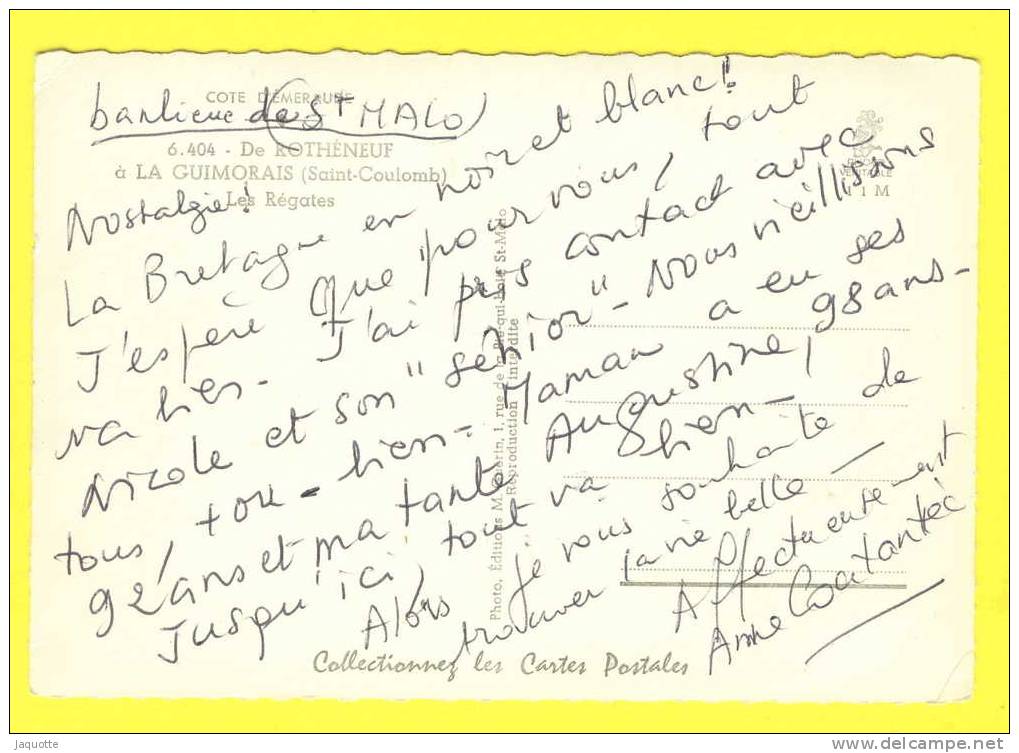 COTE D'ÉMERAUDE
banlieue de St MALO
6.404 - De ROTHÉNEUF
à LA GUIMORAIS (Saint-Coulomb)
Les Régates
Nostalgie!
La Bretagne en noir et blanc!
J'espère que pour vous, tout
va bien - J'ai pris contact avec
Nicole et son "sénior" - Nous vieillissons
tous, tou - bien - Maman a eu ses
92 ans et ma tante Augustine, 98 ans -
Jusqu'ici, tout va bien -
Alors je vous souhaite de
trouver la vie belle -
Affectueusement
Anne
VÉRITABLE
Photo. Éditions M. Guérin, 1, rue de la Pie-qui-boit, St-Malo
Reproduction interdite
Collectionnez les Cartes Postales
Jaquotte
www.delcampe.net